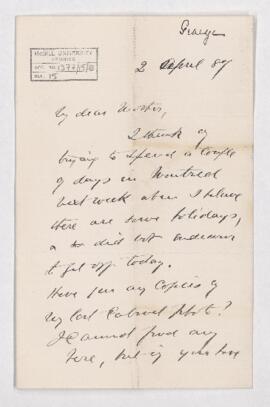 George
McGILL UNIVERSITY
ARCHIVES
ACC. NO. 1377/5/
REF. 15
2 April 87
My dear Mother,
I think of
trying to spend a couple
of days in Montreal
next week when I believe
there are some holidays,
& so did not endeavour
to get off today.
Have you any copies of
my last Cabinet photo?
I cannot find any
here, but if you have